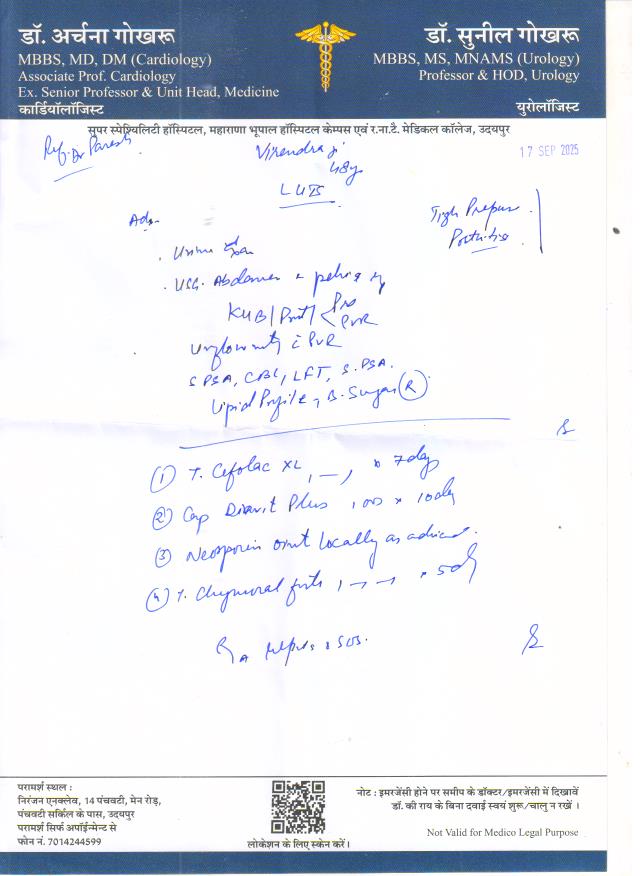 डॉ. अर्चना गोखरू
MBBS, MD, DM (Cardiology)
Associate Prof. Cardiology
Ex. Senior Professor & Unit Head, Medicine
कार्डियॉलॉजिस्ट
डॉ. सुनील गोखरू
MBBS, MS, MNAMS (Urology)
Professor & HOD, Urology
युरोलॉजिस्ट
सुपर स्पेश्यिलिटी हॉस्पिटल, महाराणा भूपाल हॉस्पिटल केम्पस एवं र.ना.टै. मेडिकल कॉलेज, उदयपुर
Ref. Dr Paresh
Virendra ji
48y
17 SEP 2025
LUTS
Adv.
Tight Prepuce
Urine
USG. Abdomen & pelvis
KUB/Prost/ Pre
PVR
Uroflowmetry c PVR
S PSA, CBC, LFT, S. PSA.
Lipid Profile, B. Sugar (R)
① T. Cefolac XL 1—1 x 7day
② Cap Plus x 10day
③ Neosporin oint locally as advised.
④ T. Chymoral forte 1-1-1 x 5d
SOS.
परामर्श स्थल :
निरंजन एनक्लेव, 14 पंचवटी, मेन रोड़,
पंचवटी सर्किल के पास, उदयपुर
परामर्श सिर्फ अपॉईन्मेन्ट से
फोन नं. 7014244599
लोकेशन के लिए स्केन करें।
नोट : इमरजेंसी होने पर समीप के डॉक्टर/इमरजेंसी में दिखावें
डॉ. की राय के बिना दवाई स्वयं शुरू/चालु न रखें ।
Not Valid for Medico Legal Purpose